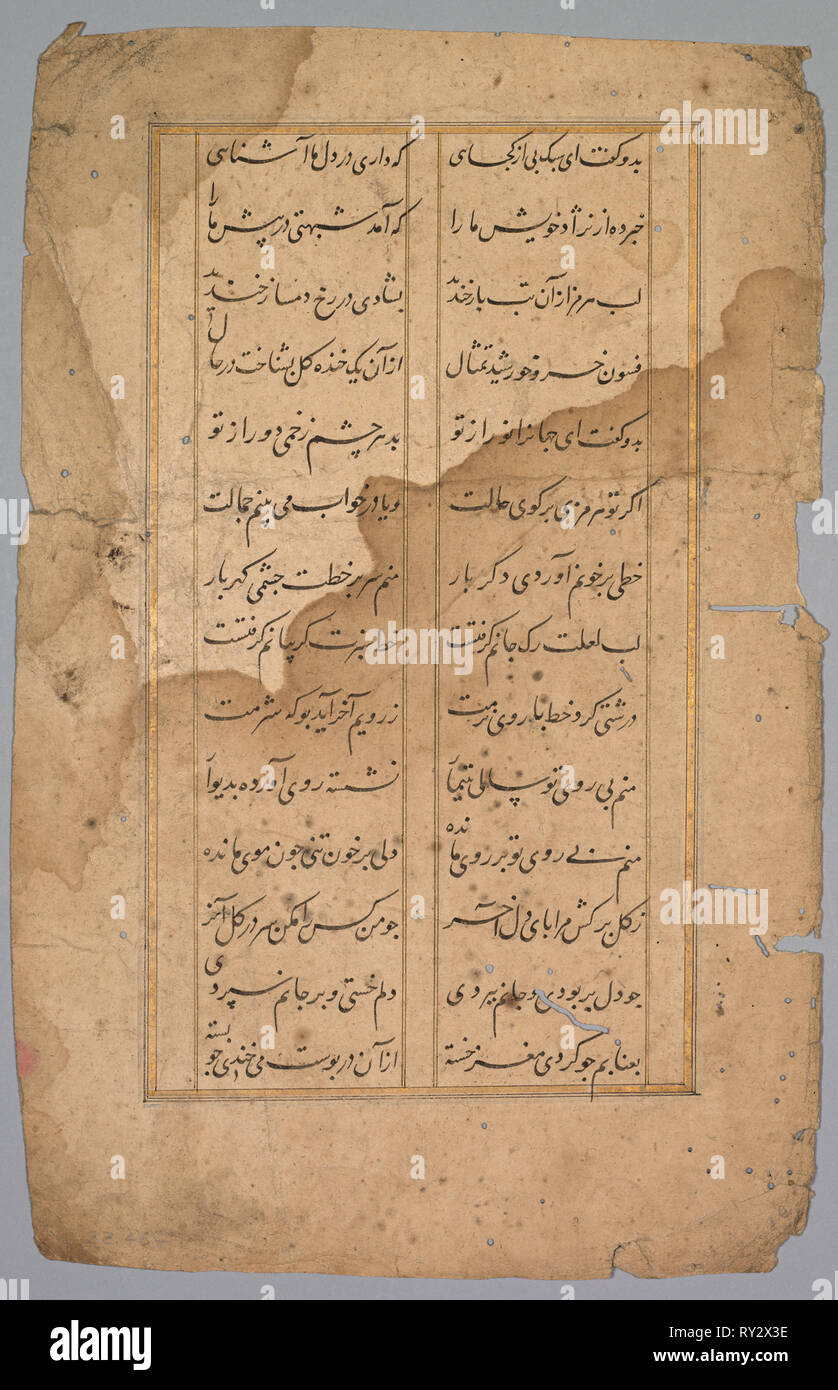 بدو گفت ای سبک پی از کجایی که داری در دل ما آشنایی
خبر ده از نژاد خویش ما را که آمد شبهتی در پیش ما را
لب هرمز از آن تب باز خندید بشادی در رخ دمساز خندید
فسون خسرو خورشید تمثال از آن یک خنده گل بشناخت در حال
بدو گفت ای جهانرا نور از تو بد هر چشم زخمی دور از تو
اگر تو هرمزی برگوی حالت و یا در خواب می بینم جمالت
خطی بر خونم آوردی دگر بار منم سر بر خطت چشمی گهربار
لب لعلت رگ جانم گرفتست خط سبزت گریبانم گرفتست
درشتی کرد خط با روی نرمت ز رویم آخر آید بو که شرمت
منم بی روی تو نشسته روی آورده بدیوار
منم بی روی تو بر روی مانده دلی پر خون تنی جون موی مانده
ز گل برکش مرا پای دل آخر جو من کس را مکن سر در گل آخر
جو دل بربودی و جانم ببردی دلم خستی و بر جانم سپردی
بعنابم جو کردی مغز خسته از آن در پوست می خندی جو بسته
a alamy
alamy
Image ID: RY2X3E
www.alamy.com